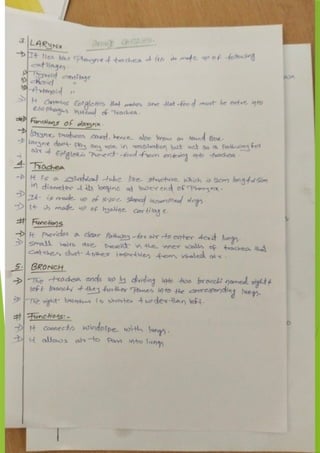 3. LARYNX
→ It lies b/w Pharynx & trachea & it is made up of following
cartilages
Thyroid cartilage
Cricoid "
Arytenoid "
→ It contains Epiglottis that makes sure that food must be enter into
esophagus instead of Trachea.
# Functions of larynx
→ larynx produces sound, hence also known as sound Box.
→ larynx don't play any role in respiration but act as a Pathway for
air & Epiglottis Prevent food from entering into trachea.
4. Trachea
→ It is a cylindrical tube like structure which is long &
in diameter & its begins at lower end of
→ It is made up of shaped rings
→ It is made up of hyaline cartilage.
# Functions
→ It Provides a clear Pathway for air to enter & exit lungs
→ small hairs are present in the inner walls of trachea that
catches dust & other impurities from inhaled air.
5. BRONCHI
→ The trachea ends up by dividing into two bronchi named right &
left bronchi & they further Passes into the corresponding lungs.
→ The right bronchus is shorter & wider than left.
# Functions:-
→ It connects windpipe with lungs.
→ It allows air to Pass into lungs